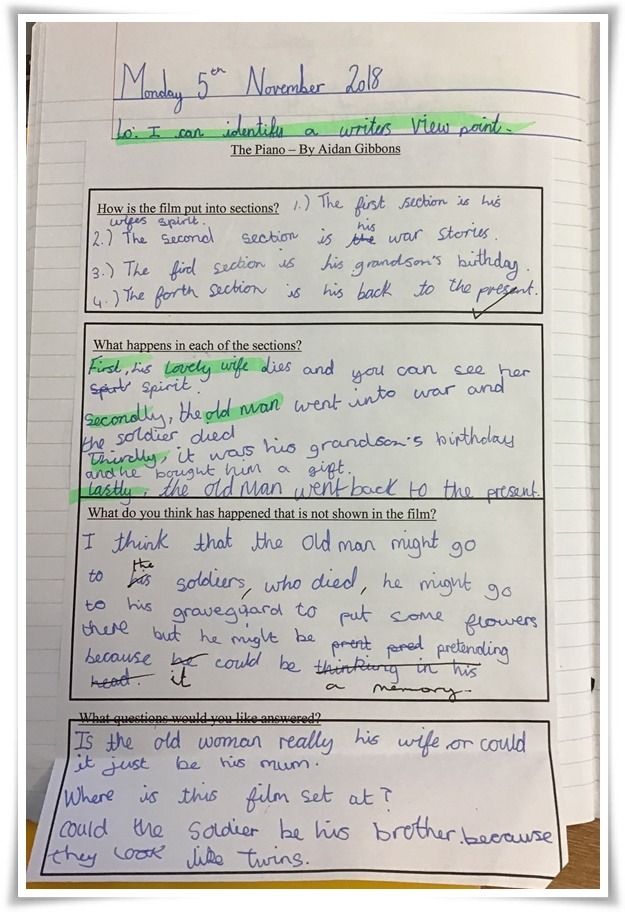 Monday 5th November 2018
Lo: I can identify a writers view point.
The Piano – By Aidan Gibbons
How is the film put into sections? 1.) The first section is his
wifes spirit.
2.) The second section is ~~the~~ his war stories.
3.) The fird section is his grandson's birthday.
4.) The forth section is his back to the present.
What happens in each of the sections?
First, his lovely wife dies and you can see her
~~spirt~~ spirit.
Secondly, the old man went into war and
the soldier died
Thirdly, it was his grandson's birthday
and he bought him a gift.
Lastly, the old man went back to the present.
What do you think has happened that is not shown in the film?
I think that the old man might go
to ~~his~~ the soldiers, who died, he might go
to his graveyard to put some flowers
there but he might be ~~prent~~ ~~pred~~ pretending
because ~~he~~ it could be ~~thinking in his~~
~~head.~~ a memory.
What questions would you like answered?
Is the old woman really his wife or could
it just be his mum.
Where is this film set at?
Could the soldier be his brother because
they look like twins.